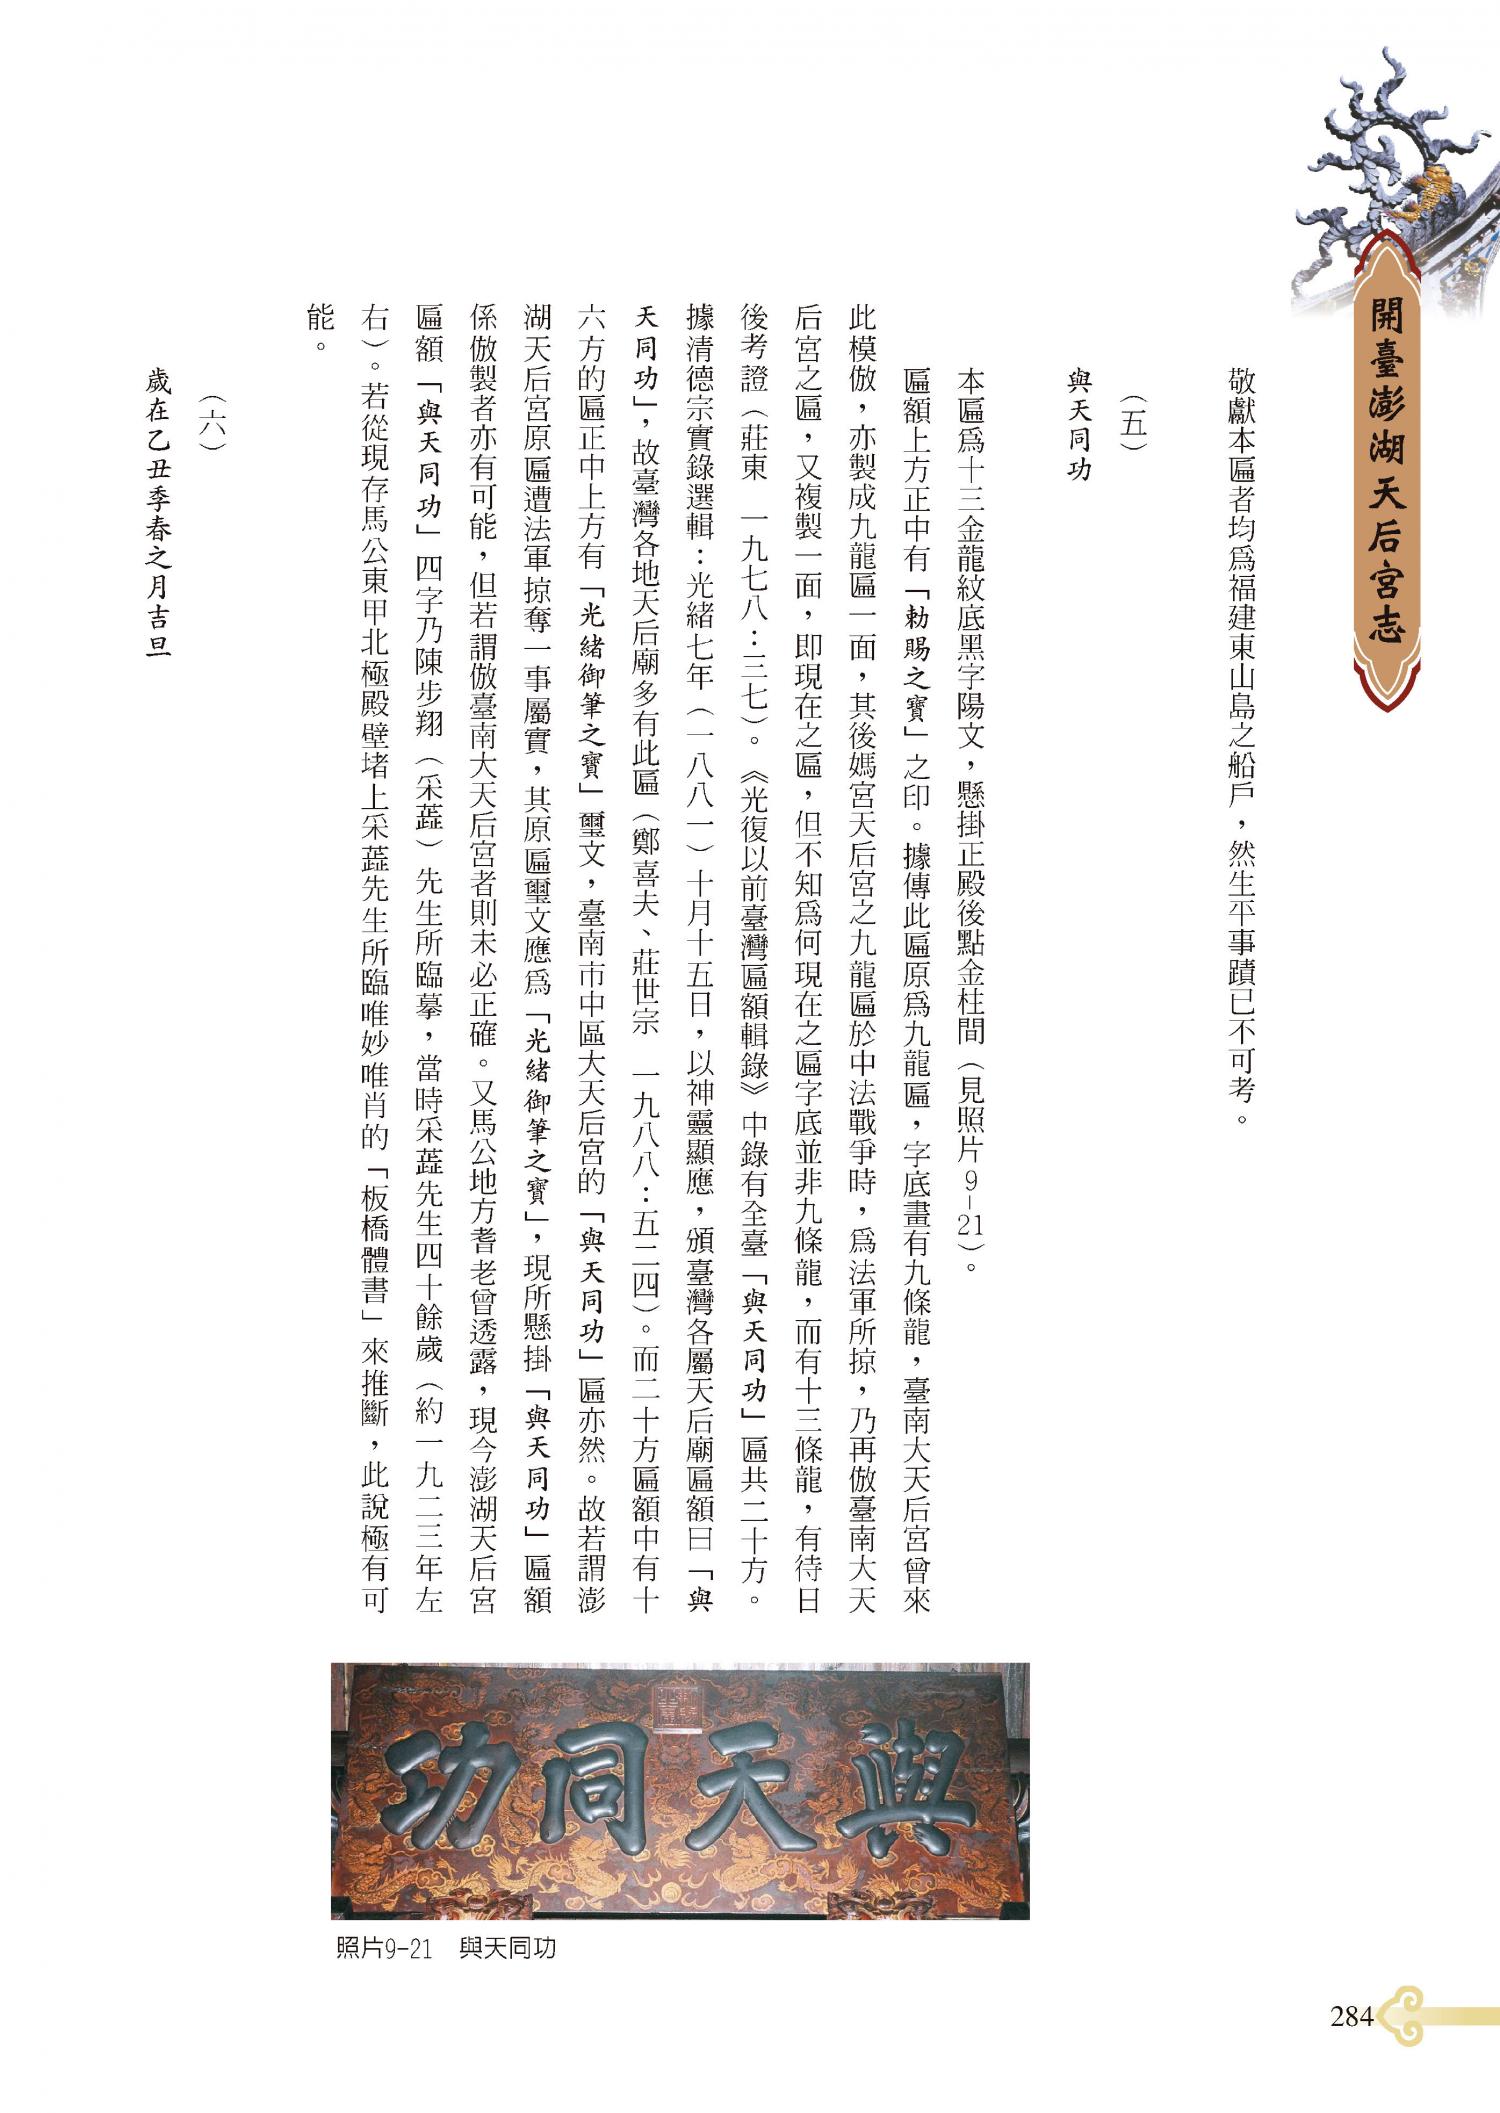 開臺澎湖天后宮志
敬獻本匾者均爲福建東山島之船戶，然生平事蹟已不可考。
（五）
與天同功
本匾爲十三金龍紋底黑字陽文，懸掛正殿後點金柱間（見照片9-21）。
匾額上方正中有「勅賜之寶」之印。據傳此匾原爲九龍匾，字底畫有九條龍，臺南大天后宮曾來
此模倣，亦製成九龍匾一面，其後媽宮天后宮之九龍匾於中法戰爭時，爲法軍所掠，乃再倣臺南大天
后宮之匾，又複製一面，即現在之匾，但不知爲何現在之匾字底並非九條龍，而有十三條龍，有待日
後考證（莊東　一九七八：三七）。《光復以前臺灣匾額輯錄》中錄有全臺「與天同功」匾共二十方。
據清德宗實錄選輯：光緒七年（一八八一）十月十五日，以神靈顯應，頒臺灣各屬天后廟匾額曰「與
天同功」，故臺灣各地天后廟多有此匾（鄭喜夫、莊世宗　一九八八：五二四）。而二十方匾額中有十
六方的匾正中上方有「光緒御筆之寶」璽文，臺南市中區大天后宮的「與天同功」匾亦然。故若謂澎
湖天后宮原匾遭法軍掠奪一事屬實，其原匾璽文應爲「光緒御筆之寶」，現所懸掛「與天同功」匾額
係倣製者亦有可能，但若謂倣臺南大天后宮者則未必正確。又馬公地方耆老曾透露，現今澎湖天后宮
匾額「與天同功」四字乃陳步翔（采蘁）先生所臨摹，當時采蘁先生四十餘歲（約一九二三年左
右）。若從現存馬公東甲北極殿壁堵上采蘁先生所臨唯妙唯肖的「板橋體書」來推斷，此說極有可
能。
（六）
歲在乙丑季春之月吉旦
與天同功
照片9-21　與天同功
284